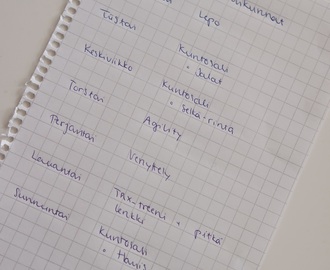 Tiistai Lepo
Keskiviikko Kuntosali
• Jalat
Torstai Kuntosali
• Selkä-rinta
Perjantai Agility
Lauantai Venyttely
Sunnuntai TRX-treeni • pitkä
lenkki
Kuntosali